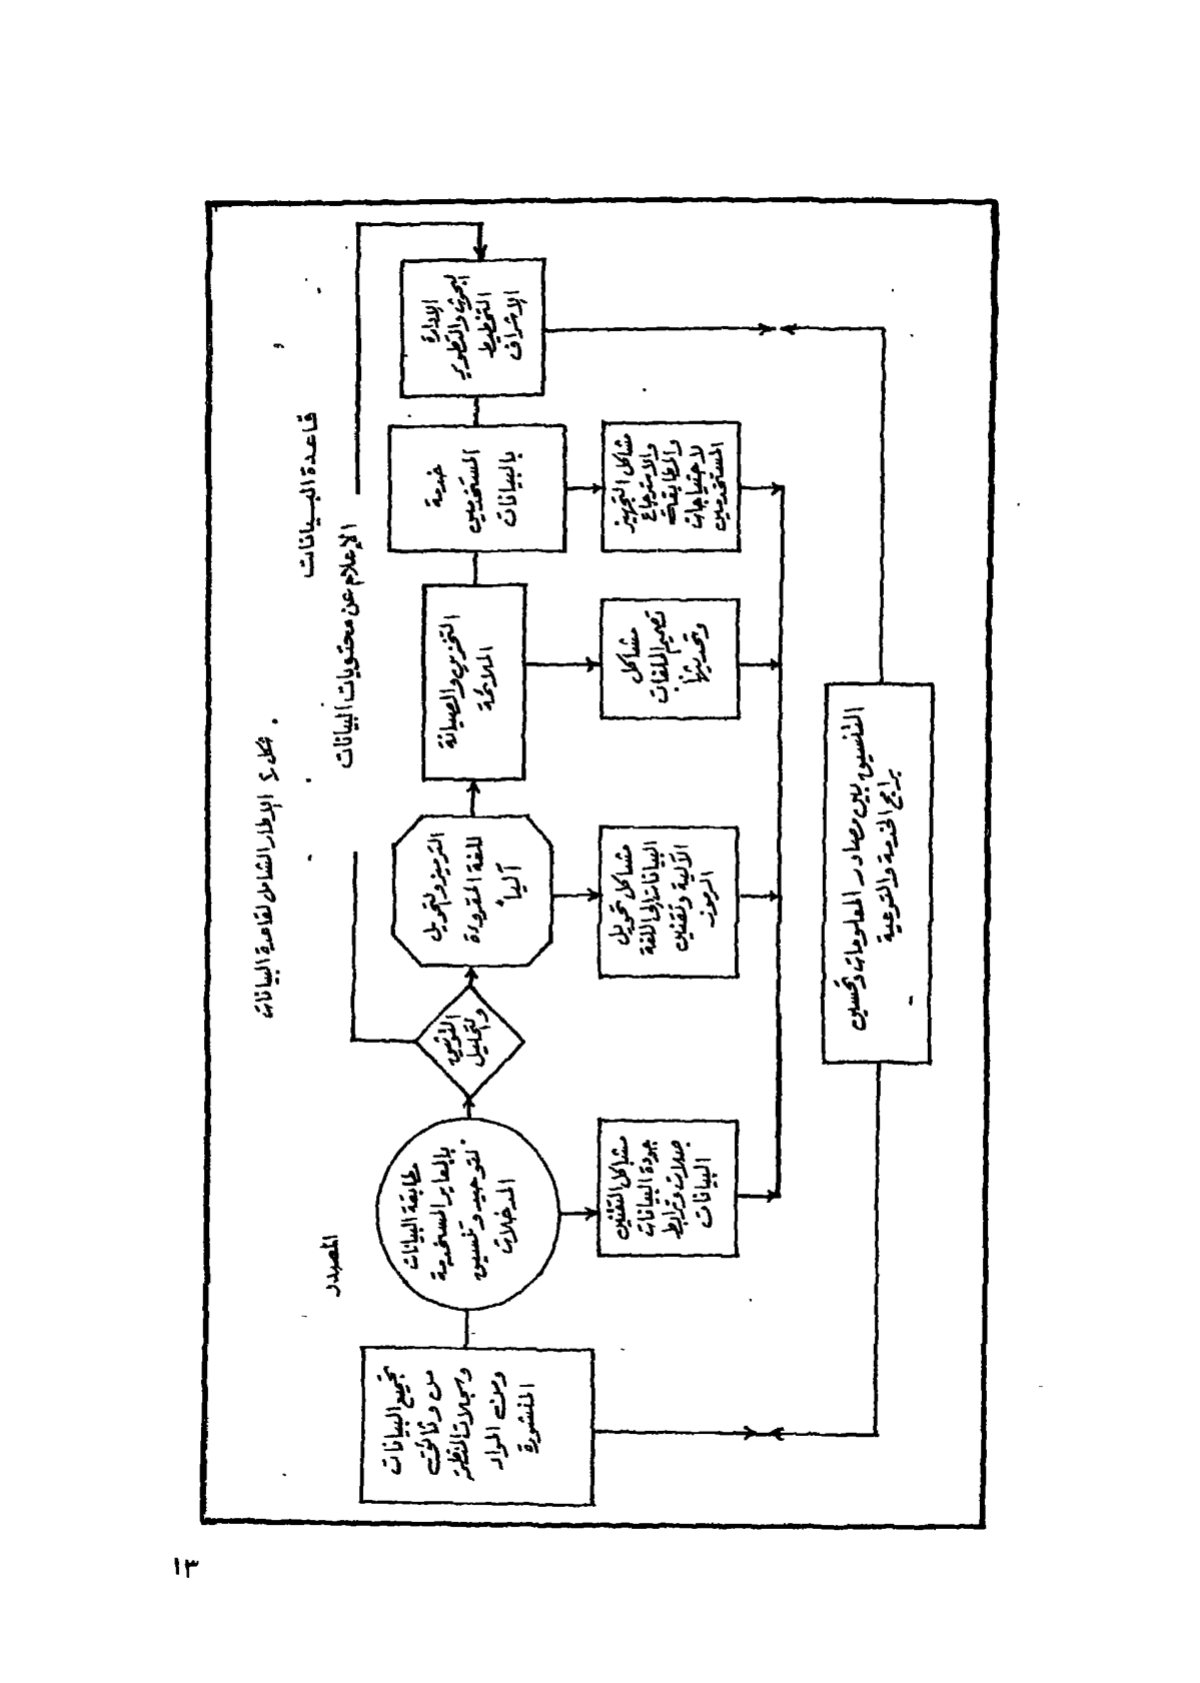 شكل ٤ الإطار الشامل لقاعدة البيانات
قاعدة البيانات
المصدر
الإعلام عن محتويات البيانات
تجميع البيانات
من وثائق
وسجلات المنظمة
ومن المواد
المنشورة
مطابقة البيانات
بالمعايير المستخدمة
لتوحيد وتنسيق
المدخلات
التوصيف
والتحليل
الترميز والتحويل
للغة المقروءة
آلياً
التخزين والصيانة
الملائمة
خدمة
المستخدمين
بالبيانات
الإدارة
البحوث والتطوير
التخطيط
الإشراف
مشاكل التقنين
جودة البيانات
صلات وترابط
البيانات
مشاكل تحويل
البيانات إلى اللغة
الآلية وتقنين
الرموز
مشاكل
تصميم الملفات
وتحديثها
مشاكل التجهيز
والاسترجاع
والمطابقة
لاحتياجات
المستخدمين
التنسيق بين مصادر المعلومات وتحسين
برامج الخدمة والتوعية
١٣